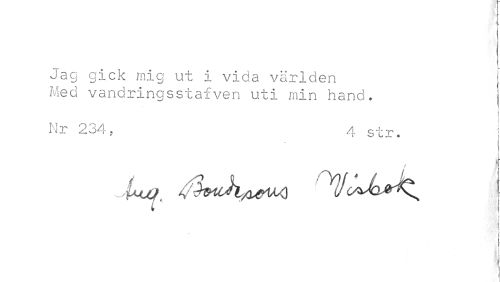 Jag gick mig ut i vida världen
Med vandringsstafven uti min hand.
Nr 234, 4 str.
Aug. Bondesons Visbok